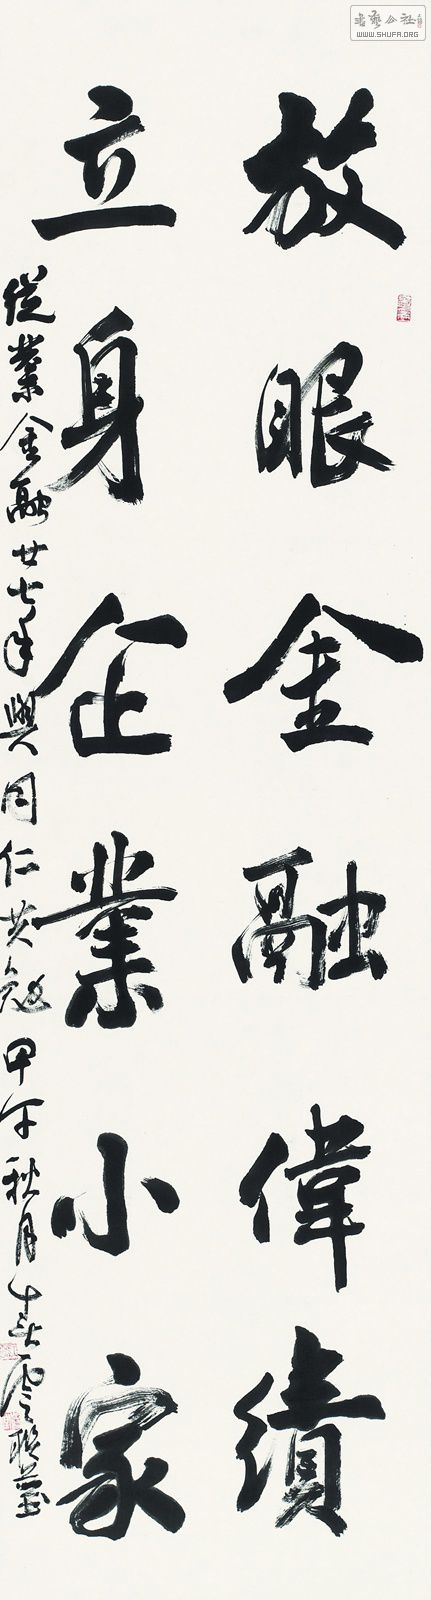 放眼金融偉績
立身企業小家
從業金融廿七年與同仁共勉甲午秋月
書藝公社
WWW.SHUFA.ORG